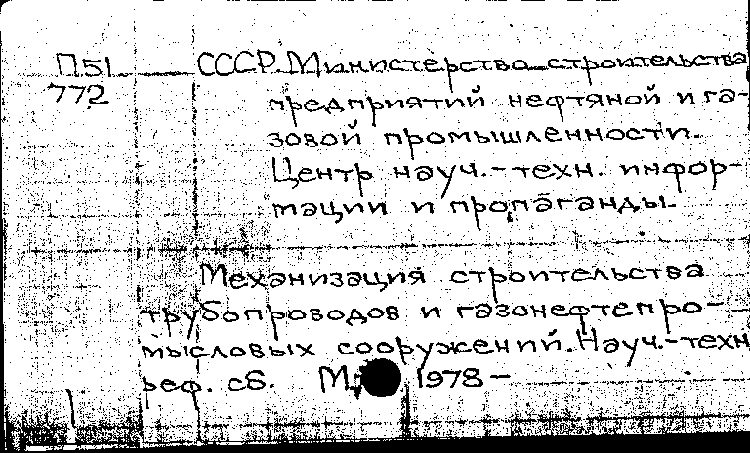 П51 СССР. Министерство строительства
772 предприятий нефтяной и га-
зовой промышленности.
Центр науч.-техн. инфор-
мации и пропаганды.
Механизация строительства
трубопроводов и газонефтепро-
мысловых сооружений. Науч.-техн
реф. сб. М., 1978 –